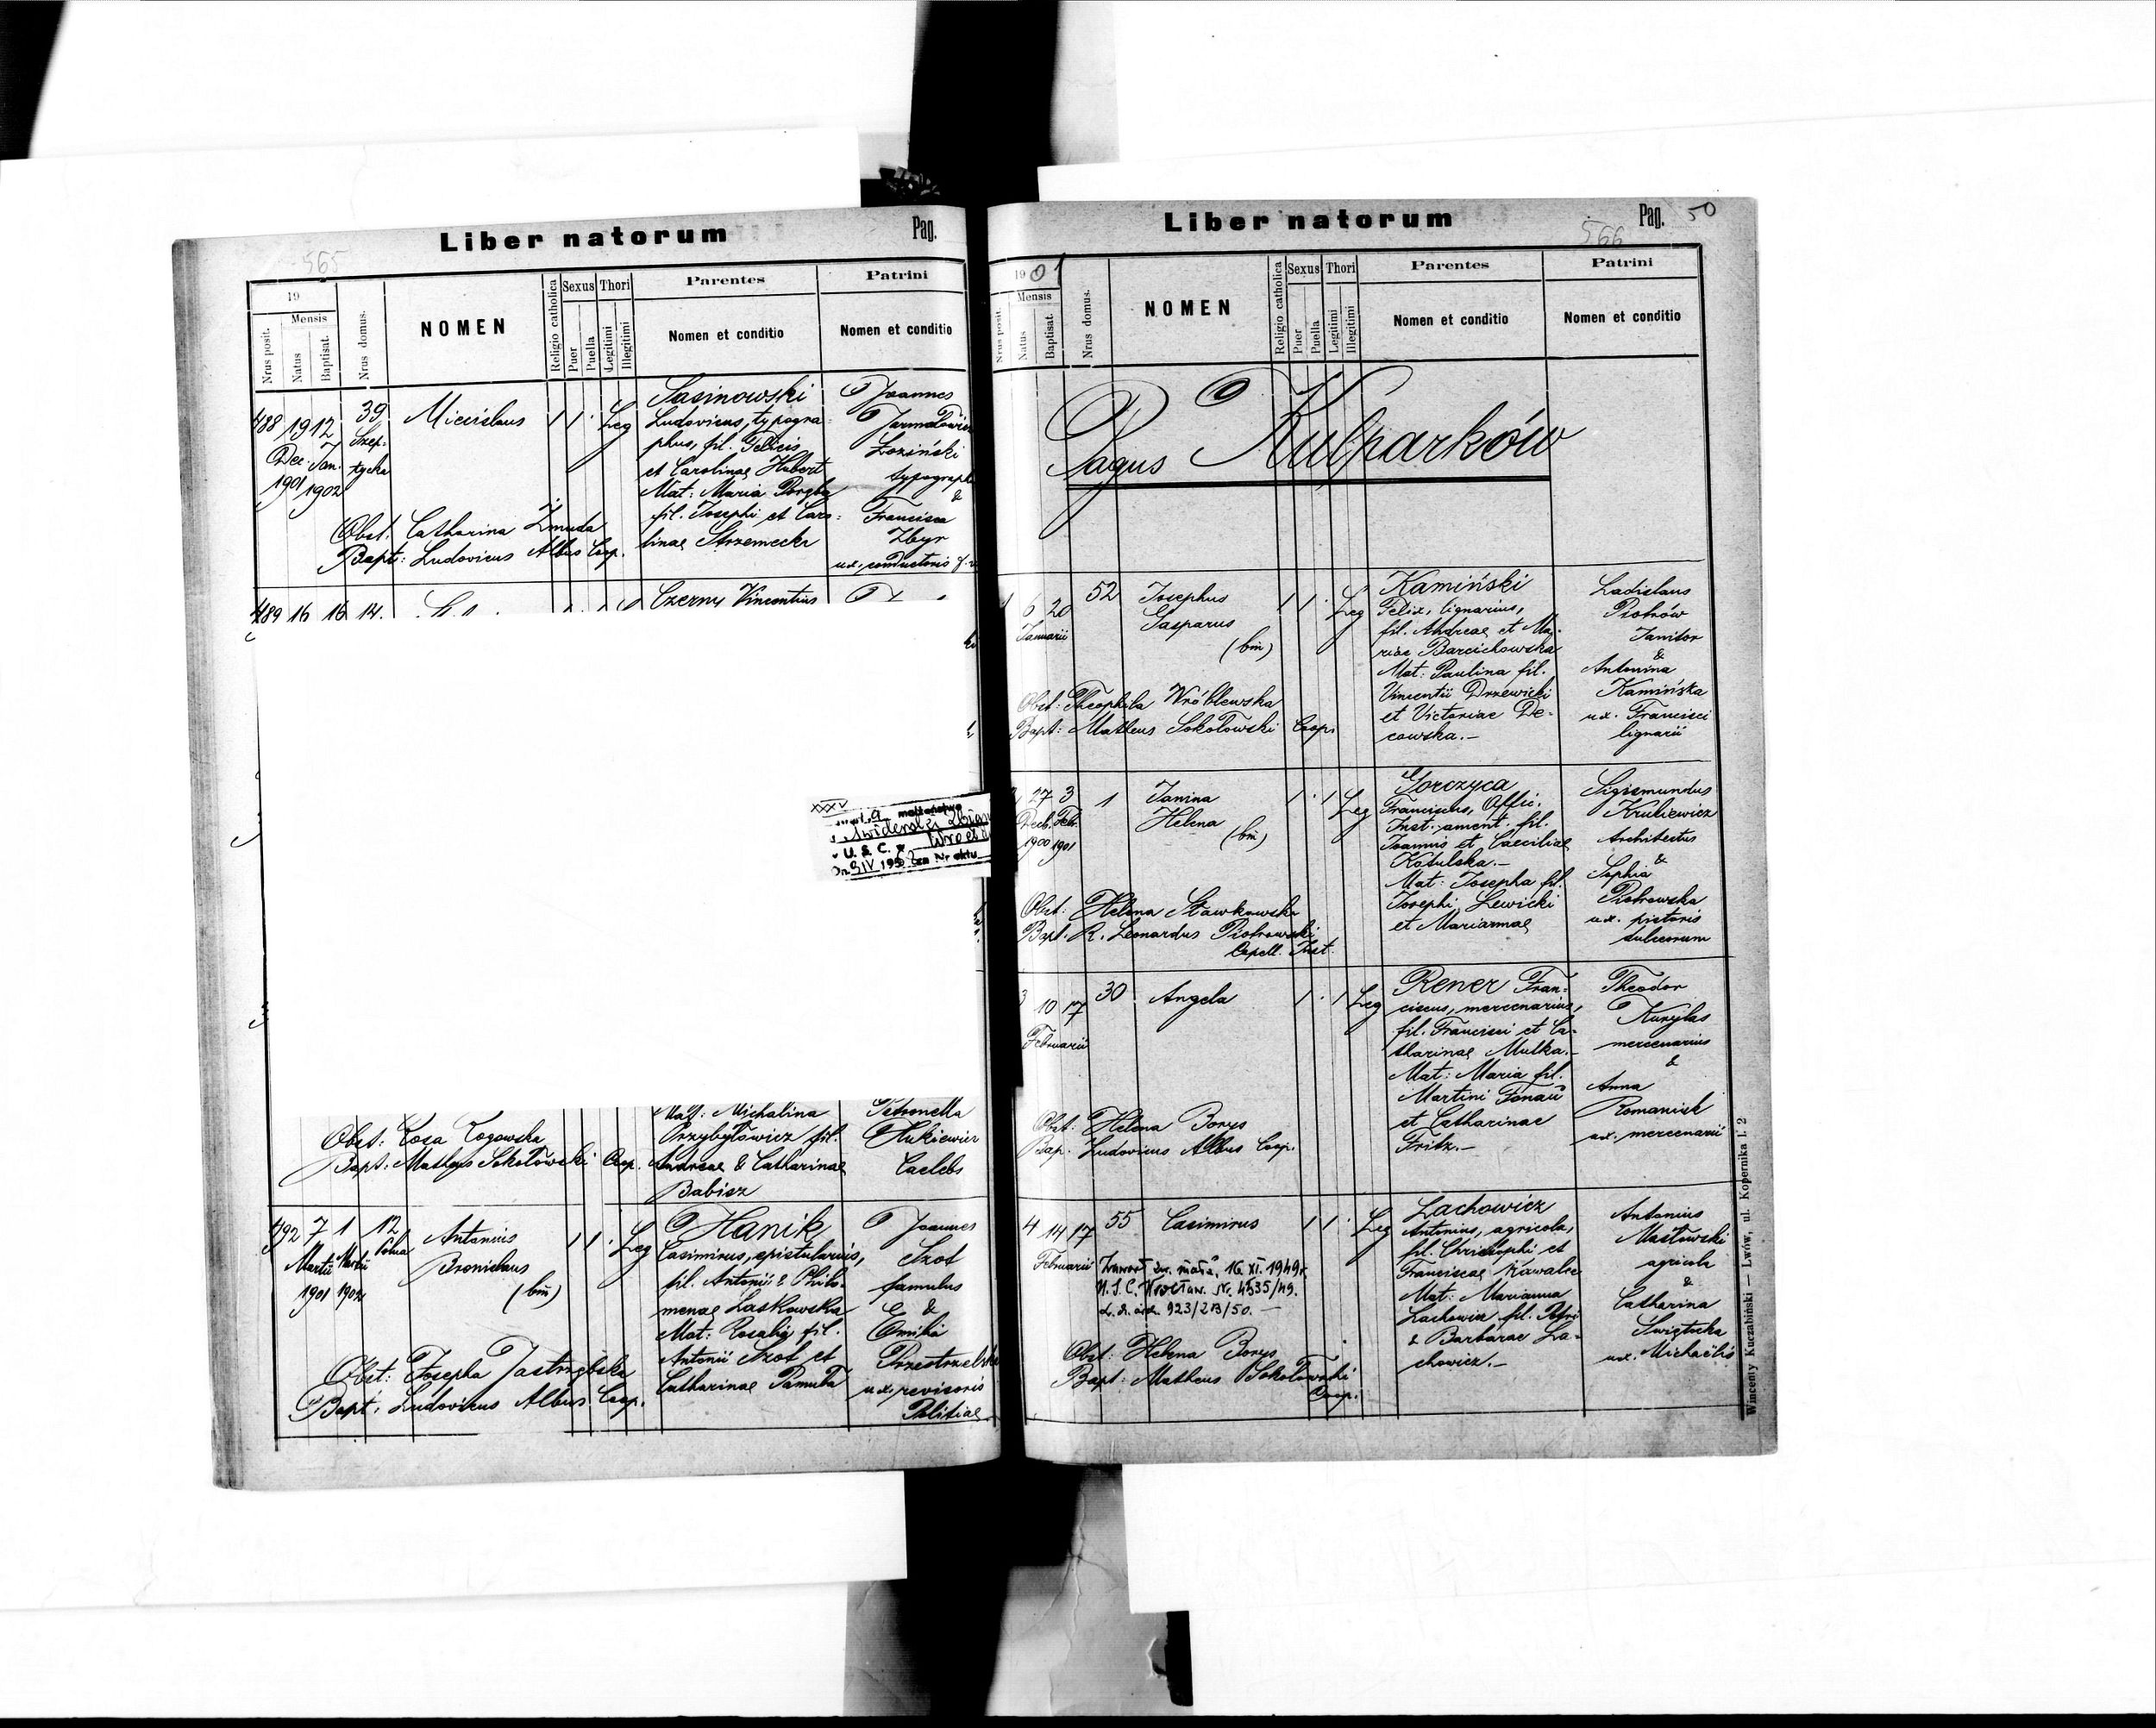 Liber natorum Pag.
565
19
Mensis
Nrus posit.
Natus
Baptisat.
Nrus domus.
NOMEN
Religio catholica
Sexus
Puer
Puella
Thori
Legitimi
Illegitimi
Parentes
Nomen et conditio
Patrini
Nomen et conditio
488 19 12 39 Miecislaus 1 1 . Leg
Dec. Jan.
1901 1902
Sasinowski
Ludovicus, typogra-
phus, fil. Felicis
et Carolinae Hubert
Mat: Maria
fil. Josephi et Caro-
linae Strzemecki
Joannes
Łoziński
typograph
&
Francisca
Zbyr
ux. conductoris
Obst: Catharina Żmuda
Bapt: Ludovicus Albus Coop.
489 16 16 14.
Czerny Vincentius
XXXV
małżeństwa
U. S. C.
Nr aktu
Mat: Michalina
Przybyłowicz fil.
Andreae & Catharinae
Babisz
Petronella
Hukiewicz
Caelebs
Obst: Rosa Rogowska
Bapt: Matheus Sokołowski Coop.
492 7 1 12 Antonius 1 1 . Leg
Martii Martii
1901 1902
Bronislaus
(bin)
Hanik
Casimirus, epistularius,
fil. Antonii & Philo-
menae Laskowska
Mat: Rosalia fil.
Antonii Szot et
Catharinae Pamuła
Joannes
Szot
famulus
&
Emilia
Przestrzelska
ux. revisoris
Politiae
Obst: Josepha Jastrzębska
Bapt: Ludovicus Albus Coop.
Liber natorum Pag. 50
566
1901
Mensis
Nrus posit.
Natus
Baptisat.
Nrus domus.
NOMEN
Religio catholica
Sexus
Puer
Puella
Thori
Legitimi
Illegitimi
Parentes
Nomen et conditio
Patrini
Nomen et conditio
Pagus Kulparków
6 20 52 Josephus 1 1 . Leg
Januarii
Gasparus
(bin)
Kamiński
Felix, lignarius,
fil. Andreae et Ma-
riae Barcichowska
Mat: Paulina fil.
Vincentii Drzewicki
et Victoriae De-
cowska.-
Ladislaus
Piotrów
Janitor
&
Antonina
Kamińska
ux. Francisci
lignarii
Obst: Theophila Wróblewska
Bapt: Matheus Sokołowski Coop.
27 3 1 Janina 1 . 1 Leg
Dech. Febr.
1900 1901
Helena
(bin)
Gorczyca
Franciscus, Offic.
Inst. ament. fil.
Joannis et Caeciliae
Kotulska.-
Mat: Josepha fil.
Josephi Lewicki
et Mariannae
Sigismundus
Krukiewicz
Architectus
&
Sophia
Piotrowska
ux. pistoris
dulceorum
Obst: Helena Sławkowska
Bapt. R. Leonardus Piotrowski
Capell. Inst.
3 10 17 30 Angela 1 . 1 Leg
Februarii
Rener Fran-
ciscus, mercenarius,
fil. Francisci et Ca-
tharinae Mulka.-
Mat: Maria fil.
Martini Fonau
et Catharinae
Fritz.-
Theodor
Kurylas
mercenarius
&
Anna
Romaniuk
ux. mercenarii
Obst: Helena Borys
Bap. Ludovicus Albus Coop.
4 14 17 55 Casimirus 1 1 . Leg
Februarii
Zawarł zw. małż. 16 XI. 1949 r.
U.S.C. Wrocław. Nr. 4535/49.
923/213/50. -
Lachowicz
Antonius, agricola,
fil. Christophi et
Franciscae Kawalec
Mat: Marianna
Lachowicz fil. Petri
& Barbarae La-
chowicz.-
Antonius
Masłowski
agricola
&
Catharina
Święticka
ux. Michaëlis
Obst: Helena Borys
Bapt: Matheus Sokołowski
Coop.
Wincenty Kuczabiński — Lwów, ul. Kopernika l. 2